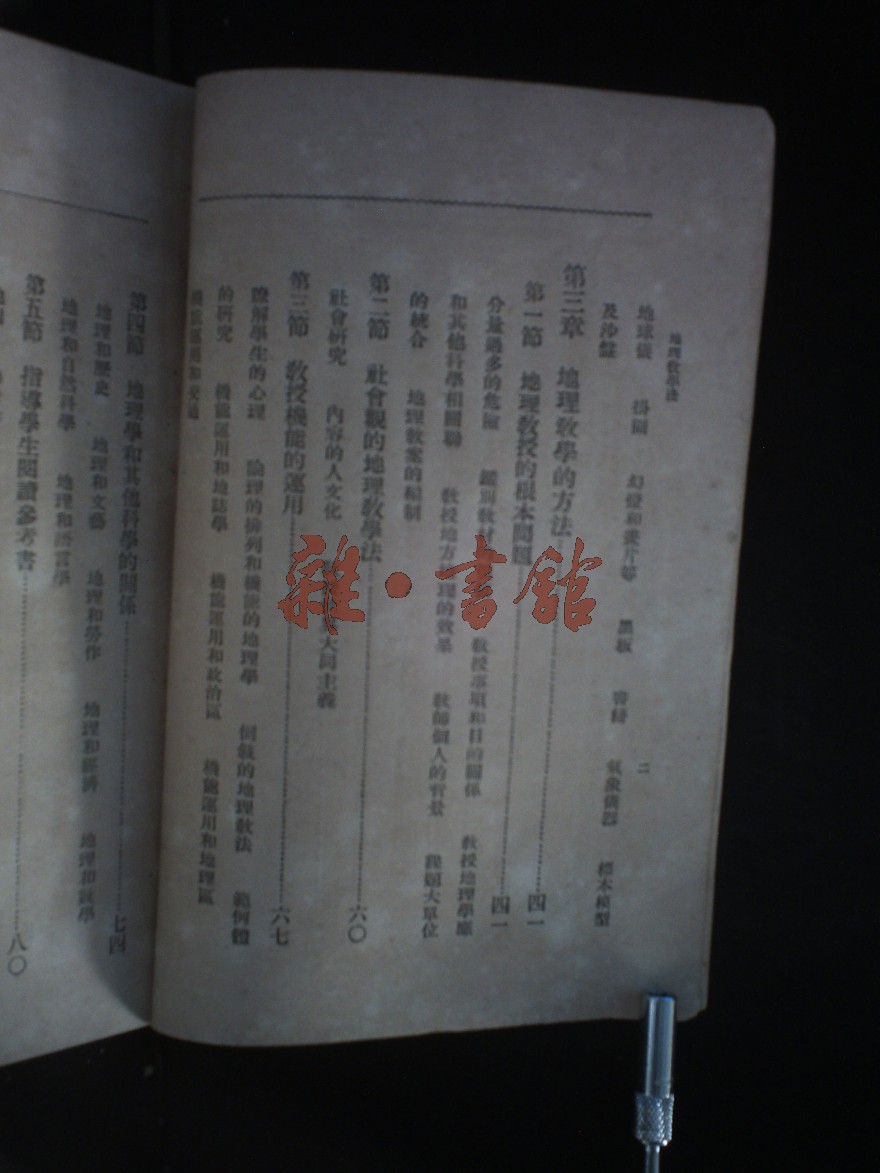 地理敎學法
二
地球儀 掛圖 幻燈和畫片等 黑板 書籍 氣象儀器 標本模型
及沙盤
第三章 地理敎學的方法 四一
第一節 地理敎授的根本問題 四一
分量過多的危險 鑑別敎材 敎授事項和目的關係 敎授地理學應
和其他科學相關聯 敎授地方 理的效果 敎師個人的背景 課題大單位
的統合 地理敎案的編制
第二節 社會觀的地理敎學法 六〇
社會硏究 內容的人文化 大同主義
第三節 敎授機能的運用 六七
瞭解學生的心理 論理的排列和機能的地理學 倒敍的地理敎法 範例體
的硏究 機能運用和地誌學 機能運用和政治區 機能運用和地理區
機能運用和交通
第四節 地理學和其他科學的關係 七四
地理和歷史 地理和文藝 地理和勞作 地理和經濟 地理和政學
地理和自然科學 地理和語言學
第五節 指導學生閱讀參考書 八〇
雜·書館